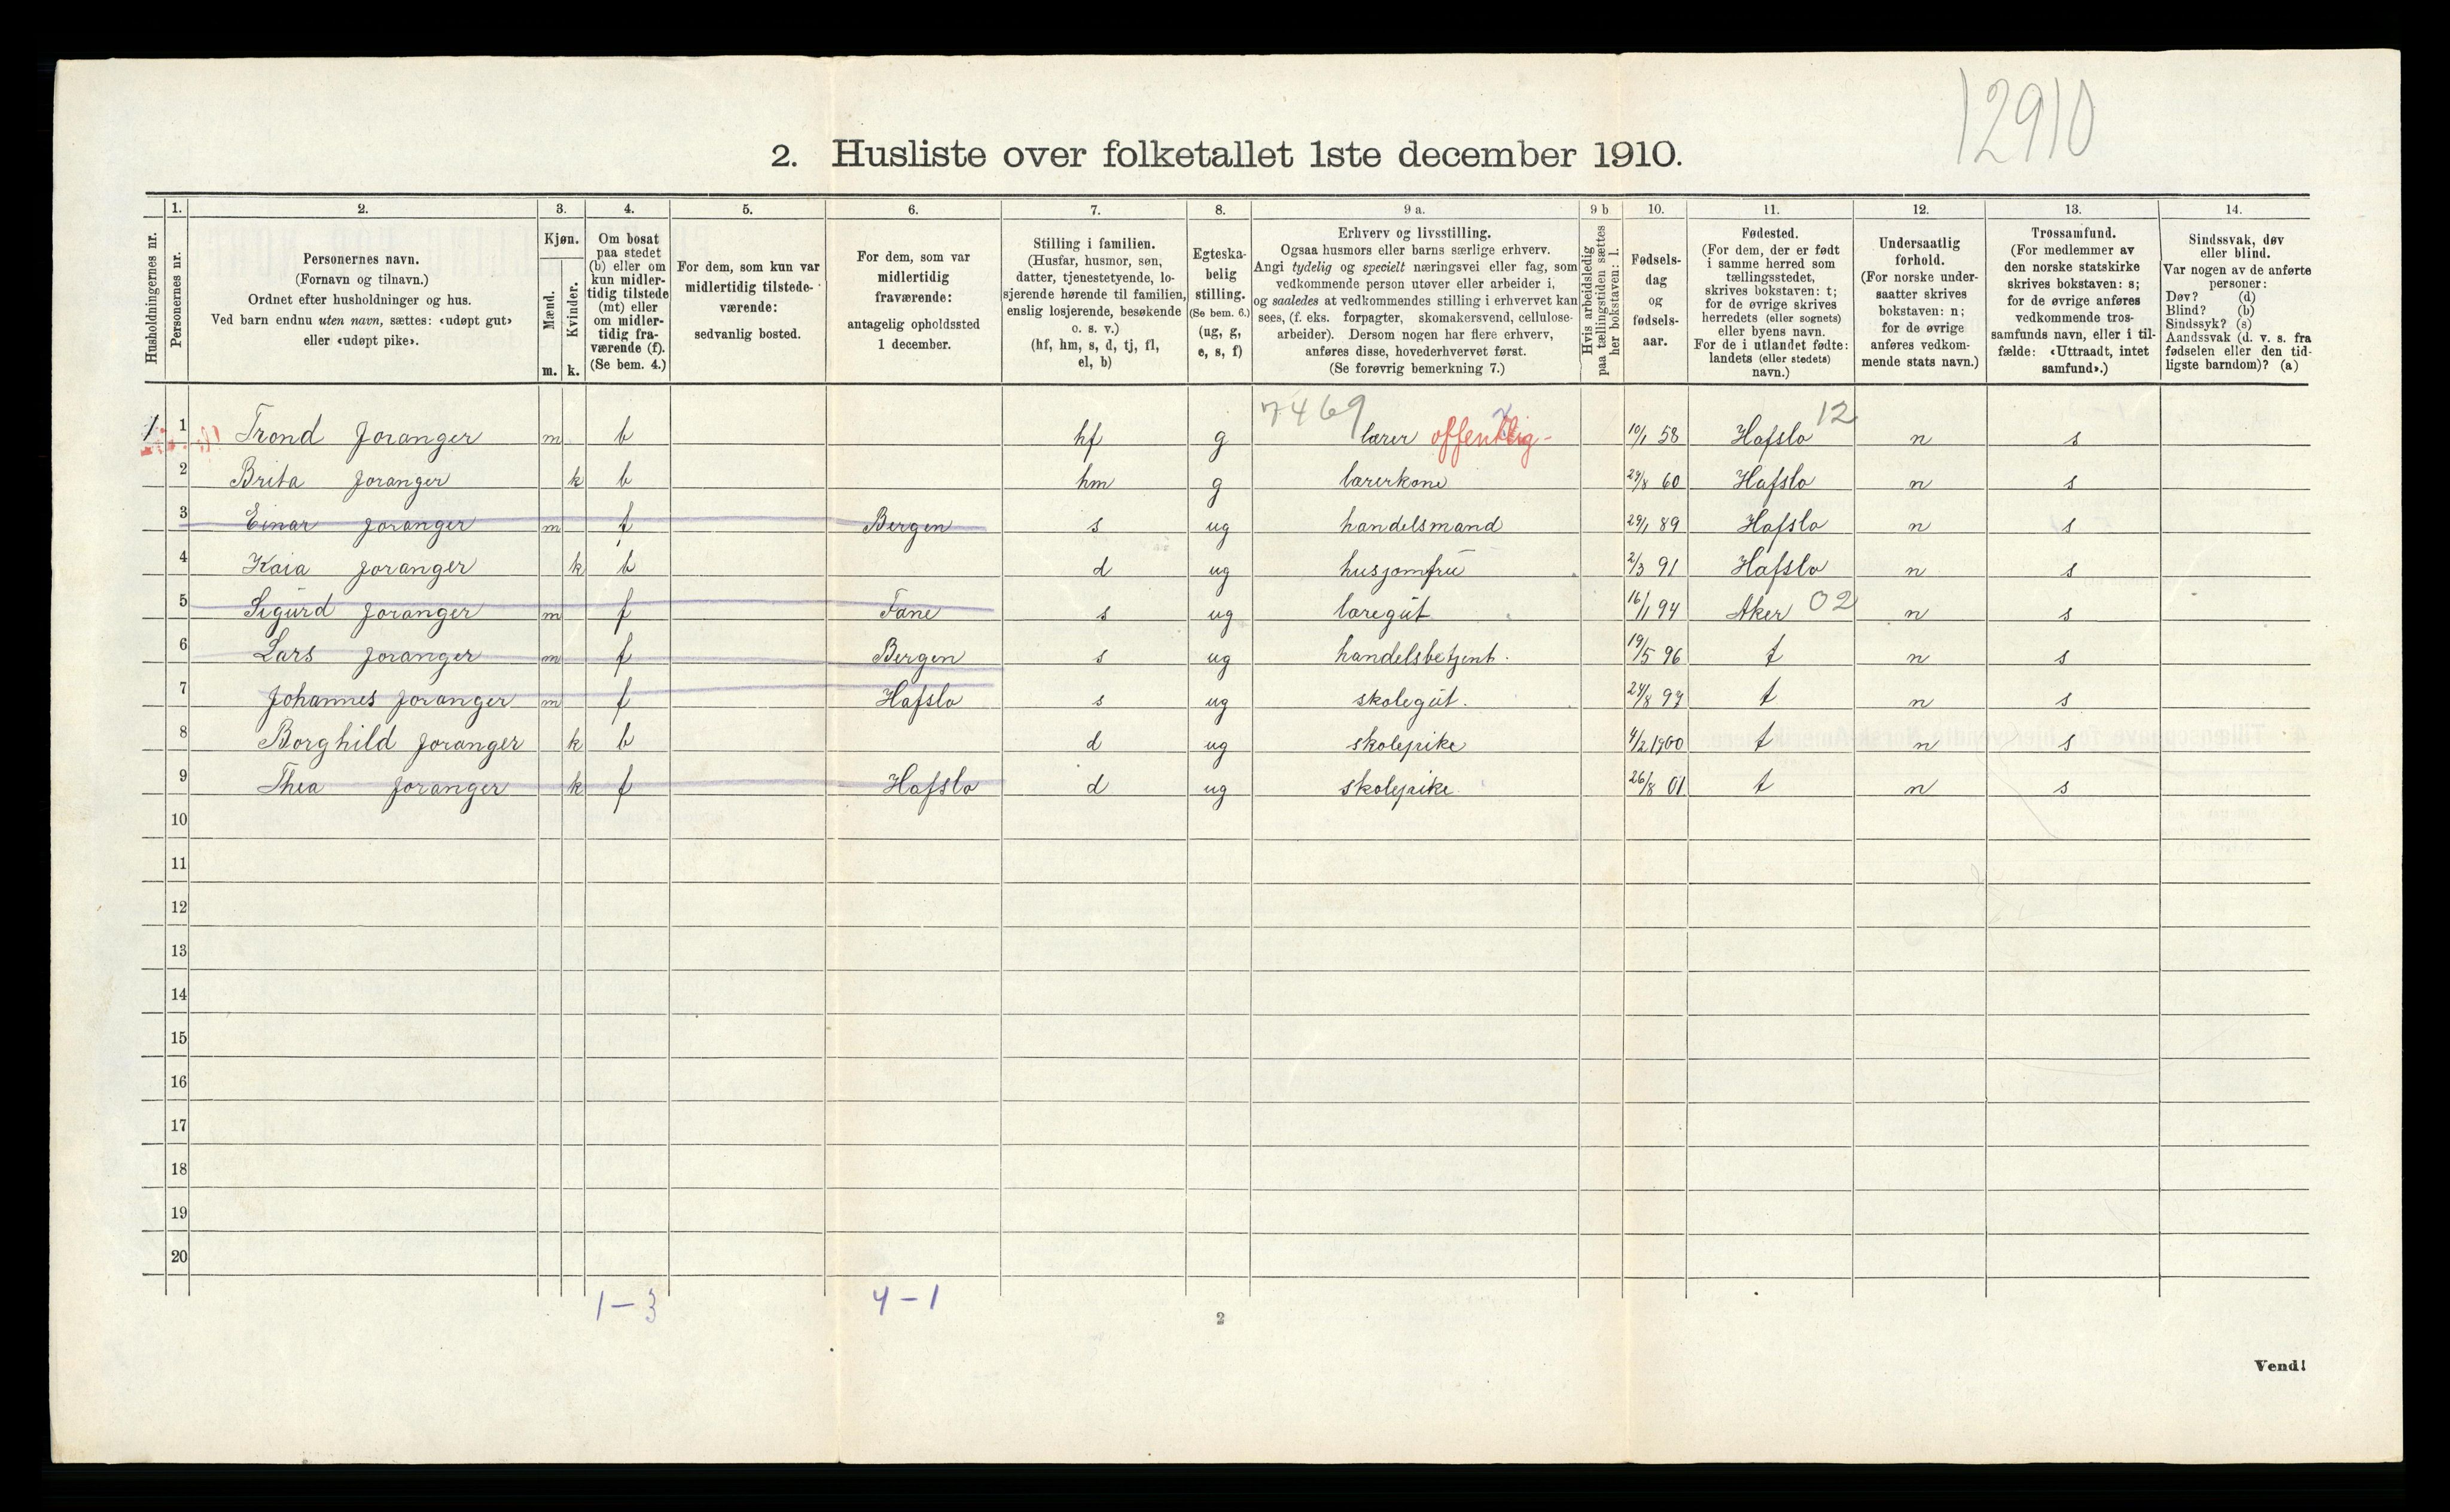 12910
2. Husliste over folketallet 1ste december 1910.
Husholdningernes nr.
1.
Personernes nr.
2.
Personernes navn.
(Fornavn og tilnavn.)
Ordnet efter husholdninger og hus.
Ved barn endnu uten navn, sættes: «udøpt gut»
eller «udøpt pike».
3.
Kjøn.
Mænd.
Kvinder.
m. k.
4.
Om bosat
paa stedet
(b) eller om
kun midler-
tidig tilstede
(mt) eller
om midler-
tidig fra-
værende (f).
(Se bem. 4.)
5.
For dem, som kun var
midlertidig tilstede-
værende:
sedvanlig bosted.
6.
For dem, som var
midlertidig
fraværende:
antagelig opholdssted
1 december.
7.
Stilling i familien.
(Husfar, husmor, søn,
datter, tjenestetyende, lo-
sjerende hørende til familien,
enslig losjerende, besøkende
o. s. v.)
(hf, hm, s, d, tj, fl,
el, b)
8.
Egteska-
belig
stilling.
(Se bem. 6.)
(ug, g,
e, s, f)
9 a.
Erhverv og livsstilling.
Ogsaa husmors eller barns særlige erhverv.
Angi tydelig og specielt næringsvei eller fag, som
vedkommende person utøver eller arbeider i,
og saaledes at vedkommendes stilling i erhvervet kan
sees, (f. eks. forpagter, skomakersvend, cellulose-
arbeider). Dersom nogen har flere erhverv,
anføres disse, hovederhvervet først.
(Se forøvrig bemerkning 7.)
9 b
Hvis arbeidsledig
paa tællingstiden sættes
her bokstaven: l.
10.
Fødsels-
dag
og
fødsels-
aar.
11.
Fødested.
(For dem, der er født
i samme herred som
tællingsstedet,
skrives bokstaven: t;
for de øvrige skrives
herredets (eller sognets)
eller byens navn.
For de i utlandet fødte:
landets (eller stedets)
navn.)
12.
Undersaatlig
forhold.
(For norske under-
saatter skrives
bokstaven: n;
for de øvrige
anføres vedkom-
mende stats navn.)
13.
Trossamfund.
(For medlemmer av
den norske statskirke
skrives bokstaven: s;
for de øvrige anføres
vedkommende tros-
samfunds navn, eller i til-
fælde: «Uttraadt, intet
samfund».)
14.
Sindssvak, døv
eller blind.
Var nogen av de anførte
personer:
Døv? (d)
Blind? (b)
Sindssyk? (s)
Aandssvak (d. v. s. fra
fødselen eller den tid-
ligste barndom)? (a)
7469 12
1 1 Trond Joranger m b hf g lærer offentlig- 10/1 58 Hafslo n s
2 Brita Joranger k b hm g lærerkone 29/8 60 Hafslo n s
3 Einar Joranger m f Bergen s ug handelsmand 29/1 89 Hafslo n s
4 Kaia Joranger k b d ug husjomfru 2/3 91 Hafslo n s
5 Sigurd Joranger m f Fane s ug læregut 16/1 94 Aker 02 n s
6 Lars Joranger m f Bergen s ug handelsbetjent. 19/5 96 t n s
7 Johannes Joranger m f Hafslo s ug skolegut. 24/8 97 t n s
8 Borghild Joranger k b d ug skolepike 4/2 1900 t n s
9 Thea Joranger k f Hafslo d ug skolepike 26/8 01 t n s
10
11
12
13
14
15
16
17
18
19
20
1-3 4-1
2
Vend!